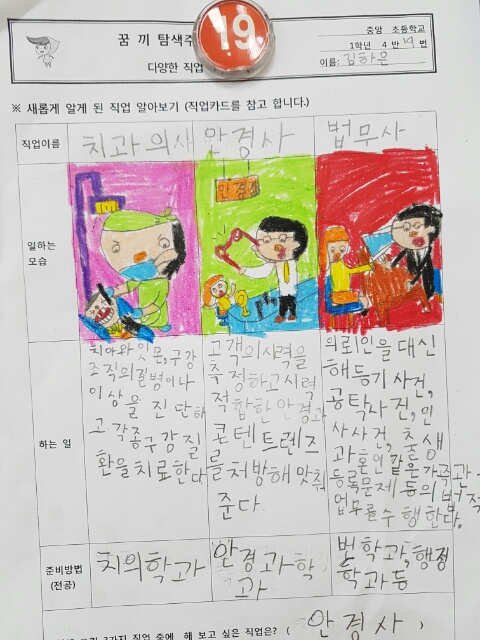 꿈 끼 탐색주
19
다양한 직업
중앙 초등학교
1학년 4 반 19 번
이름: 김하은
※ 새롭게 알게 된 직업 알아보기 (직업카드를 참고 합니다.)
직업이름
치과의사
안경사
법무사
일하는
모습
안경
하는 일
치아와 잇몸, 구강
조직의 질병이나
이상을 진단하
고 각종 구강 질
환을 치료한다
고객의 시력을
측정하고 시력
적합한 안경과
콘텐트렌즈
를 처방해 맞춰
준다.
의뢰인을 대신
해 등기 사건,
공탁사건, 민
사사건, 출생
과 혼인 같은 가족관
등록문제 등의 법적
업무를 수행한다.
준비방법
(전공)
치의학과
안경과학
과
법학과, 행정
학과 등
3가지 직업 중에 해 보고 싶은 직업은? ( 안경사,